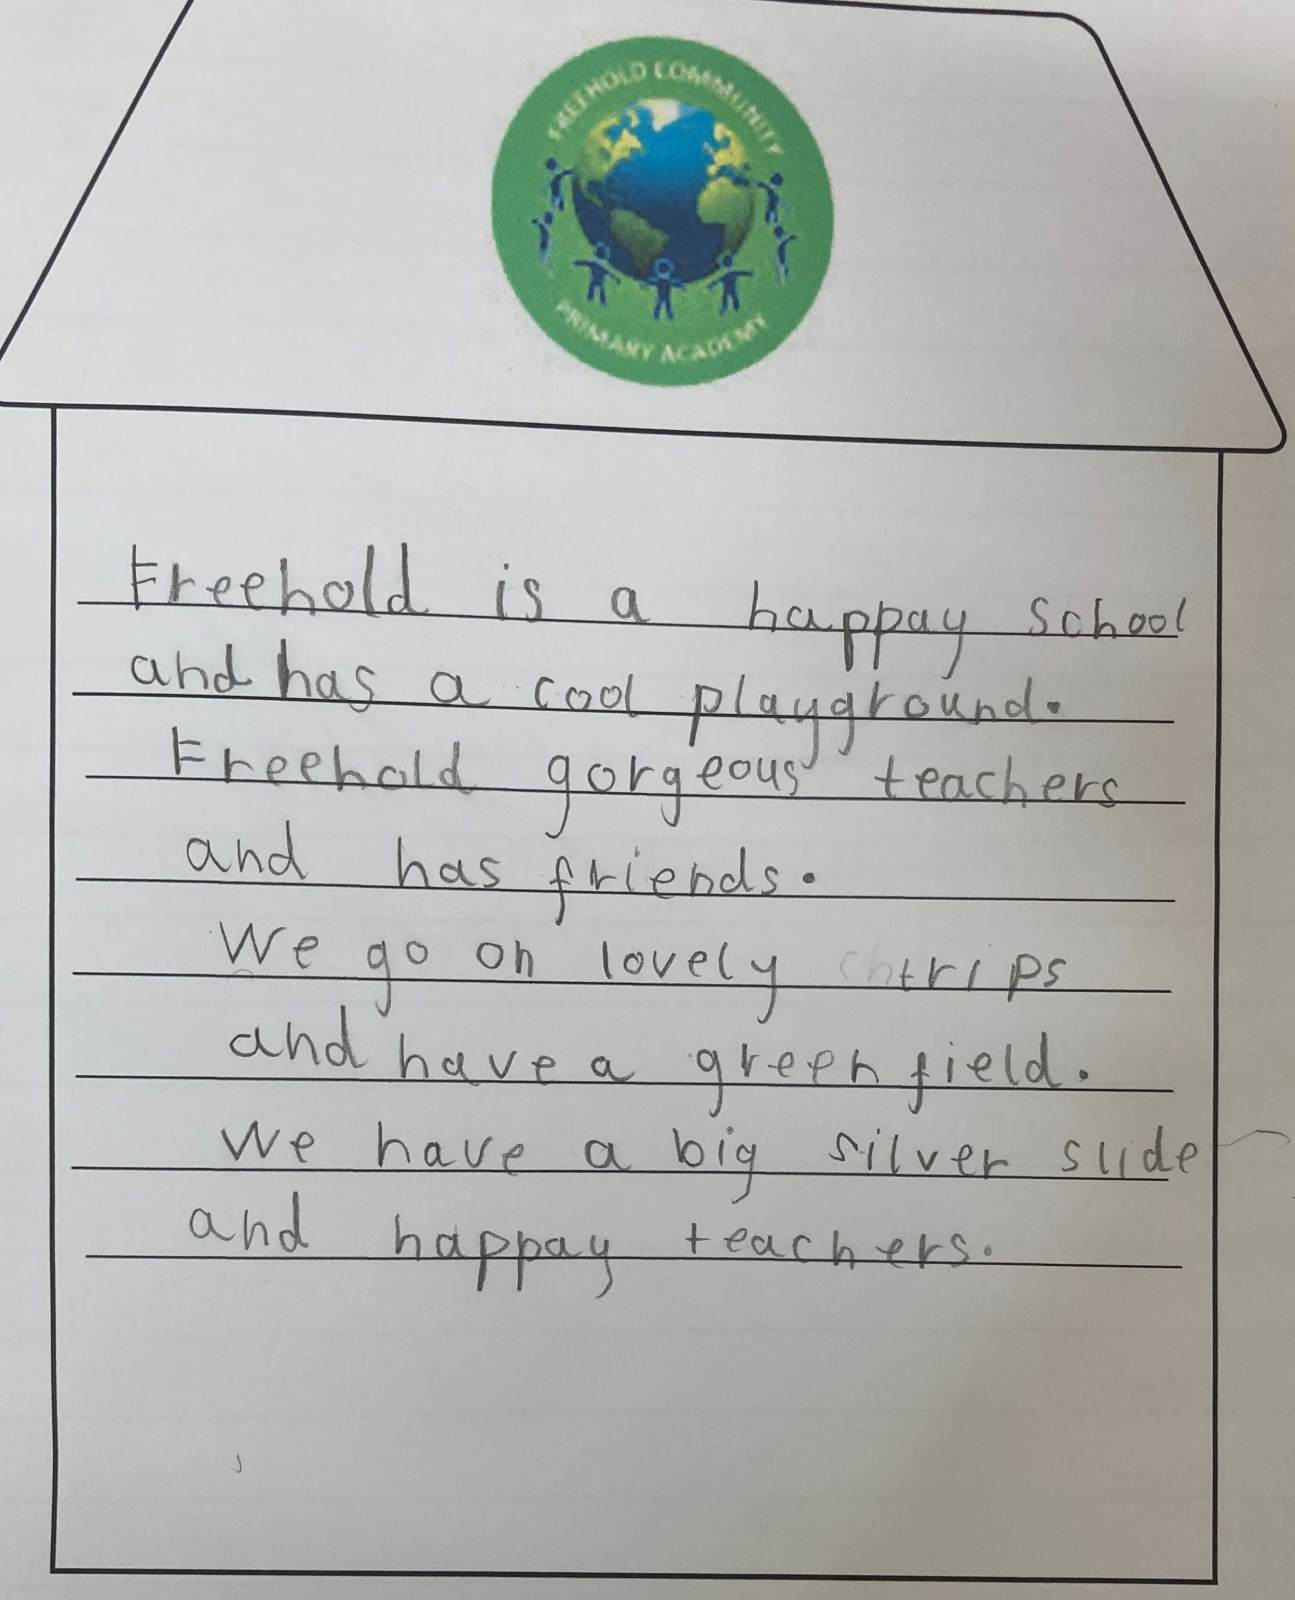 FREEHOLD COMMUNITY
PRIMARY ACADEMY
Freehold is a happay school
and has a cool playground.
Freehold gorgeous teachers
and has friends.
We go on lovely trips
and have a green field.
We have a big silver slide
and happay teachers.